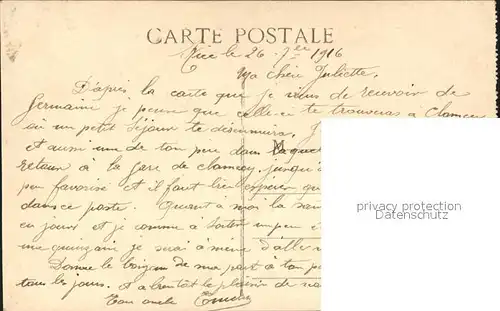 CARTE POSTALE
Nice le 26 7bre 1916
Ma chère Juliette.
D'après la carte que je viens de recevoir de
Germaine je pense que celle-ci te trouveras à Clamecy
où un petit séjour te
et aussi une de ton père dans laquel
retour à la gare de Clamecy, jusqu'
peu favorisé et il faut bien espérer qu
dans ce poste. Quant à moi la san
en jour et je comme à sortir un peu
une quinzaine je serai à même d'alle
Donne le bonjour de ma part à ton p
tous les jours. et a bientôt le plaisir de
Ton oncle
privacy protection
Datenschutz